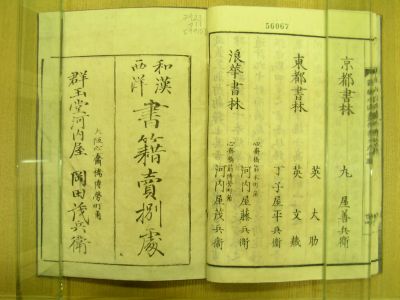 56067
京都書林
丸屋善兵衛
東都書林
英大助
英文蔵
丁子屋平兵衛
浪華書林
心斎橋筋本町角
河内屋藤兵衛
心斎橋筋博労町角
河内屋茂兵衛
和漢
西洋
書籍賣捌處
大阪心齋橋博労町角
群玉堂河内屋
岡田茂兵衛